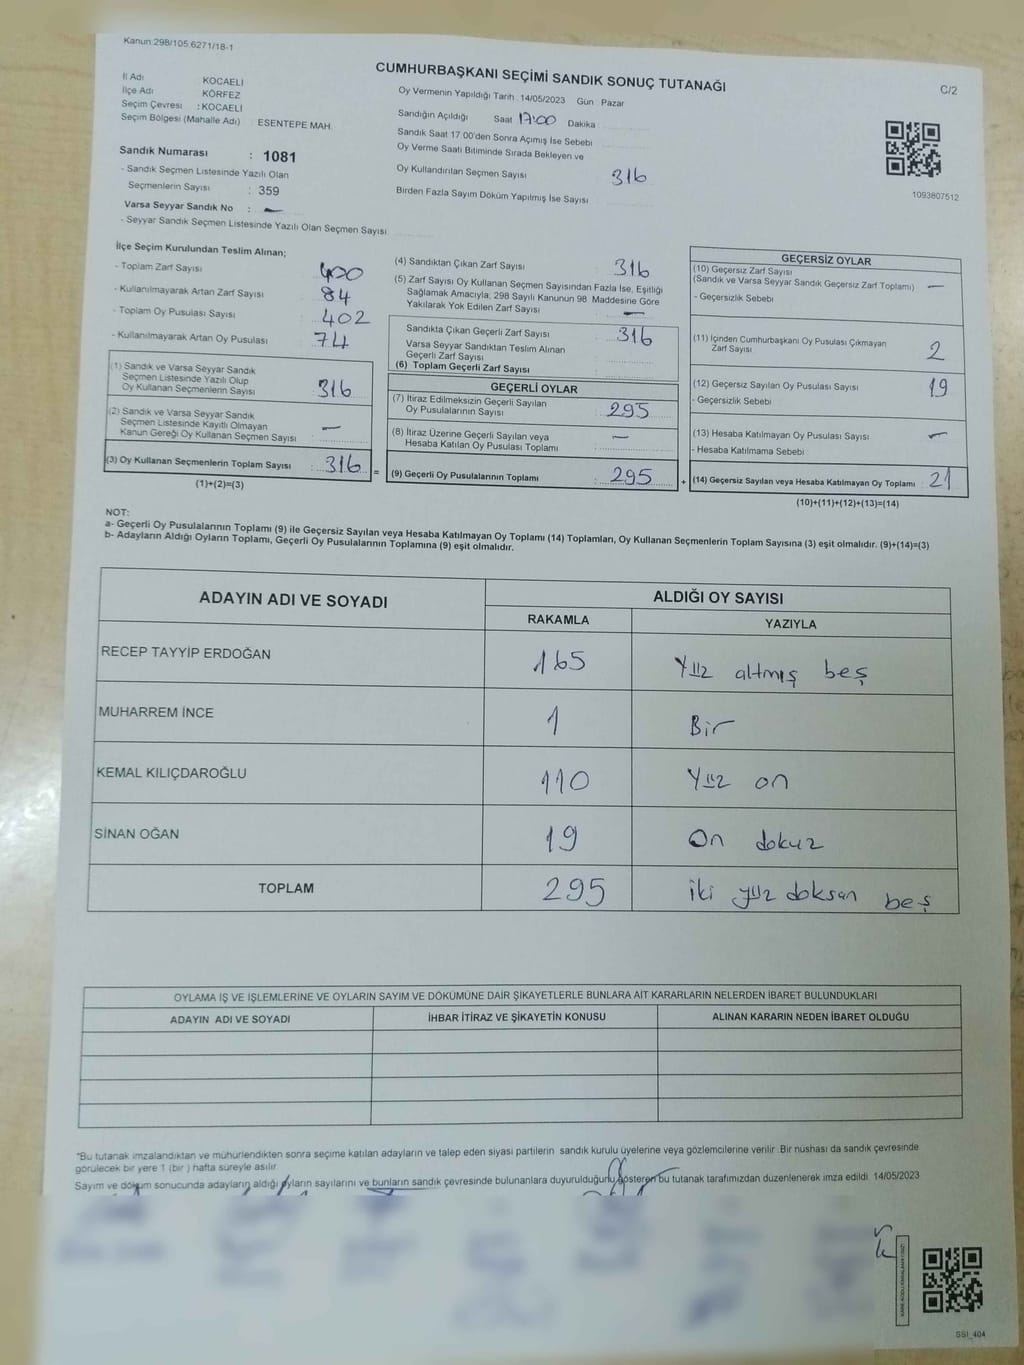 Kanun:298/105.6271/18-1
CUMHURBAŞKANI SEÇİMİ SANDIK SONUÇ TUTANAĞI
C/2
İl Adı KOCAELİ
İlçe Adı KÖRFEZ
Seçim Çevresi : KOCAELİ
Seçim Bölgesi (Mahalle Adı) : ESENTEPE MAH.
Oy Vermenin Yapıldığı Tarih : 14/05/2023 Gün : Pazar
Sandığın Açıldığı Saat 17:00 Dakika
Sandık Saat 17.00'den Sonra Açılmış İse Sebebi
Oy Verme Saati Bitiminde Sırada Bekleyen ve
Oy Kullandırılan Seçmen Sayısı 316
Birden Fazla Sayım Döküm Yapılmış İse Sayısı
1093807512
Sandık Numarası : 1081
- Sandık Seçmen Listesinde Yazılı Olan
Seçmenlerin Sayısı : 359
Varsa Seyyar Sandık No : —
- Seyyar Sandık Seçmen Listesinde Yazılı Olan Seçmen Sayısı
İlçe Seçim Kurulundan Teslim Alınan;
- Toplam Zarf Sayısı 400
- Kullanılmayarak Artan Zarf Sayısı 84
- Toplam Oy Pusulası Sayısı 402
- Kullanılmayarak Artan Oy Pusulası 74
(1) Sandık ve Varsa Seyyar Sandık
Seçmen Listesinde Yazılı Olup
Oy Kullanan Seçmenlerin Sayısı 316
(2) Sandık ve Varsa Seyyar Sandık
Seçmen Listesinde Kayıtlı Olmayan
Kanun Gereği Oy Kullanan Seçmen Sayısı —
(3) Oy Kullanan Seçmenlerin Toplam Sayısı : 316 =
(1)+(2)=(3)
(4) Sandıktan Çıkan Zarf Sayısı 316
(5) Zarf Sayısı Oy Kullanan Seçmen Sayısından Fazla İse, Eşitliği
Sağlamak Amacıyla, 298 Sayılı Kanunun 98. Maddesine Göre
Yakılarak Yok Edilen Zarf Sayısı —
Sandıkta Çıkan Geçerli Zarf Sayısı 316
Varsa Seyyar Sandıktan Teslim Alınan
Geçerli Zarf Sayısı
(6) Toplam Geçerli Zarf Sayısı
GEÇERLİ OYLAR
(7) İtiraz Edilmeksizin Geçerli Sayılan
Oy Pusulalarının Sayısı 295
(8) İtiraz Üzerine Geçerli Sayılan veya
Hesaba Katılan Oy Pusulası Toplamı —
(9) Geçerli Oy Pusulalarının Toplamı : 295 +
GEÇERSİZ OYLAR
(10) Geçersiz Zarf Sayısı
(Sandık ve Varsa Seyyar Sandık Geçersiz Zarf Toplamı) —
- Geçersizlik Sebebi
(11) İçinden Cumhurbaşkanı Oy Pusulası Çıkmayan
Zarf Sayısı 2
(12) Geçersiz Sayılan Oy Pusulası Sayısı 19
- Geçersizlik Sebebi
(13) Hesaba Katılmayan Oy Pusulası Sayısı —
- Hesaba Katılmama Sebebi
(14) Geçersiz Sayılan veya Hesaba Katılmayan Oy Toplamı : 21
(10)+(11)+(12)+(13)=(14)
NOT:
a- Geçerli Oy Pusulalarının Toplamı (9) ile Geçersiz Sayılan veya Hesaba Katılmayan Oy Toplamı (14) Toplamları, Oy Kullanan Seçmenlerin Toplam Sayısına (3) eşit olmalıdır. (9)+(14)=(3)
b- Adayların Aldığı Oyların Toplamı, Geçerli Oy Pusulalarının Toplamına (9) eşit olmalıdır.
ADAYIN ADI VE SOYADI ALDIĞI OY SAYISI
RAKAMLA YAZIYLA
RECEP TAYYİP ERDOĞAN 165 Yüz altmış beş
MUHARREM İNCE 1 Bir
KEMAL KILIÇDAROĞLU 110 Yüz on
SİNAN OĞAN 19 On dokuz
TOPLAM 295 iki yüz doksan beş
OYLAMA İŞ VE İŞLEMLERİNE VE OYLARIN SAYIM VE DÖKÜMÜNE DAİR ŞİKAYETLERLE BUNLARA AİT KARARLARIN NELERDEN İBARET BULUNDUKLARI
ADAYIN ADI VE SOYADI İHBAR İTİRAZ VE ŞİKAYETİN KONUSU ALINAN KARARIN NEDEN İBARET OLDUĞU
*Bu tutanak imzalandıktan ve mühürlendikten sonra seçime katılan adayların ve talep eden siyasi partilerin sandık kurulu üyelerine veya gözlemcilerine verilir. Bir nüshası da sandık çevresinde
görülecek bir yere 1 (bir) hafta süreyle asılır.
Sayım ve döküm sonucunda adayların aldığı oyların sayılarını ve bunların sandık çevresinde bulunanlara duyurulduğunu gösteren bu tutanak tarafımızdan düzenlenerek imza edildi. 14/05/2023
SSI_404